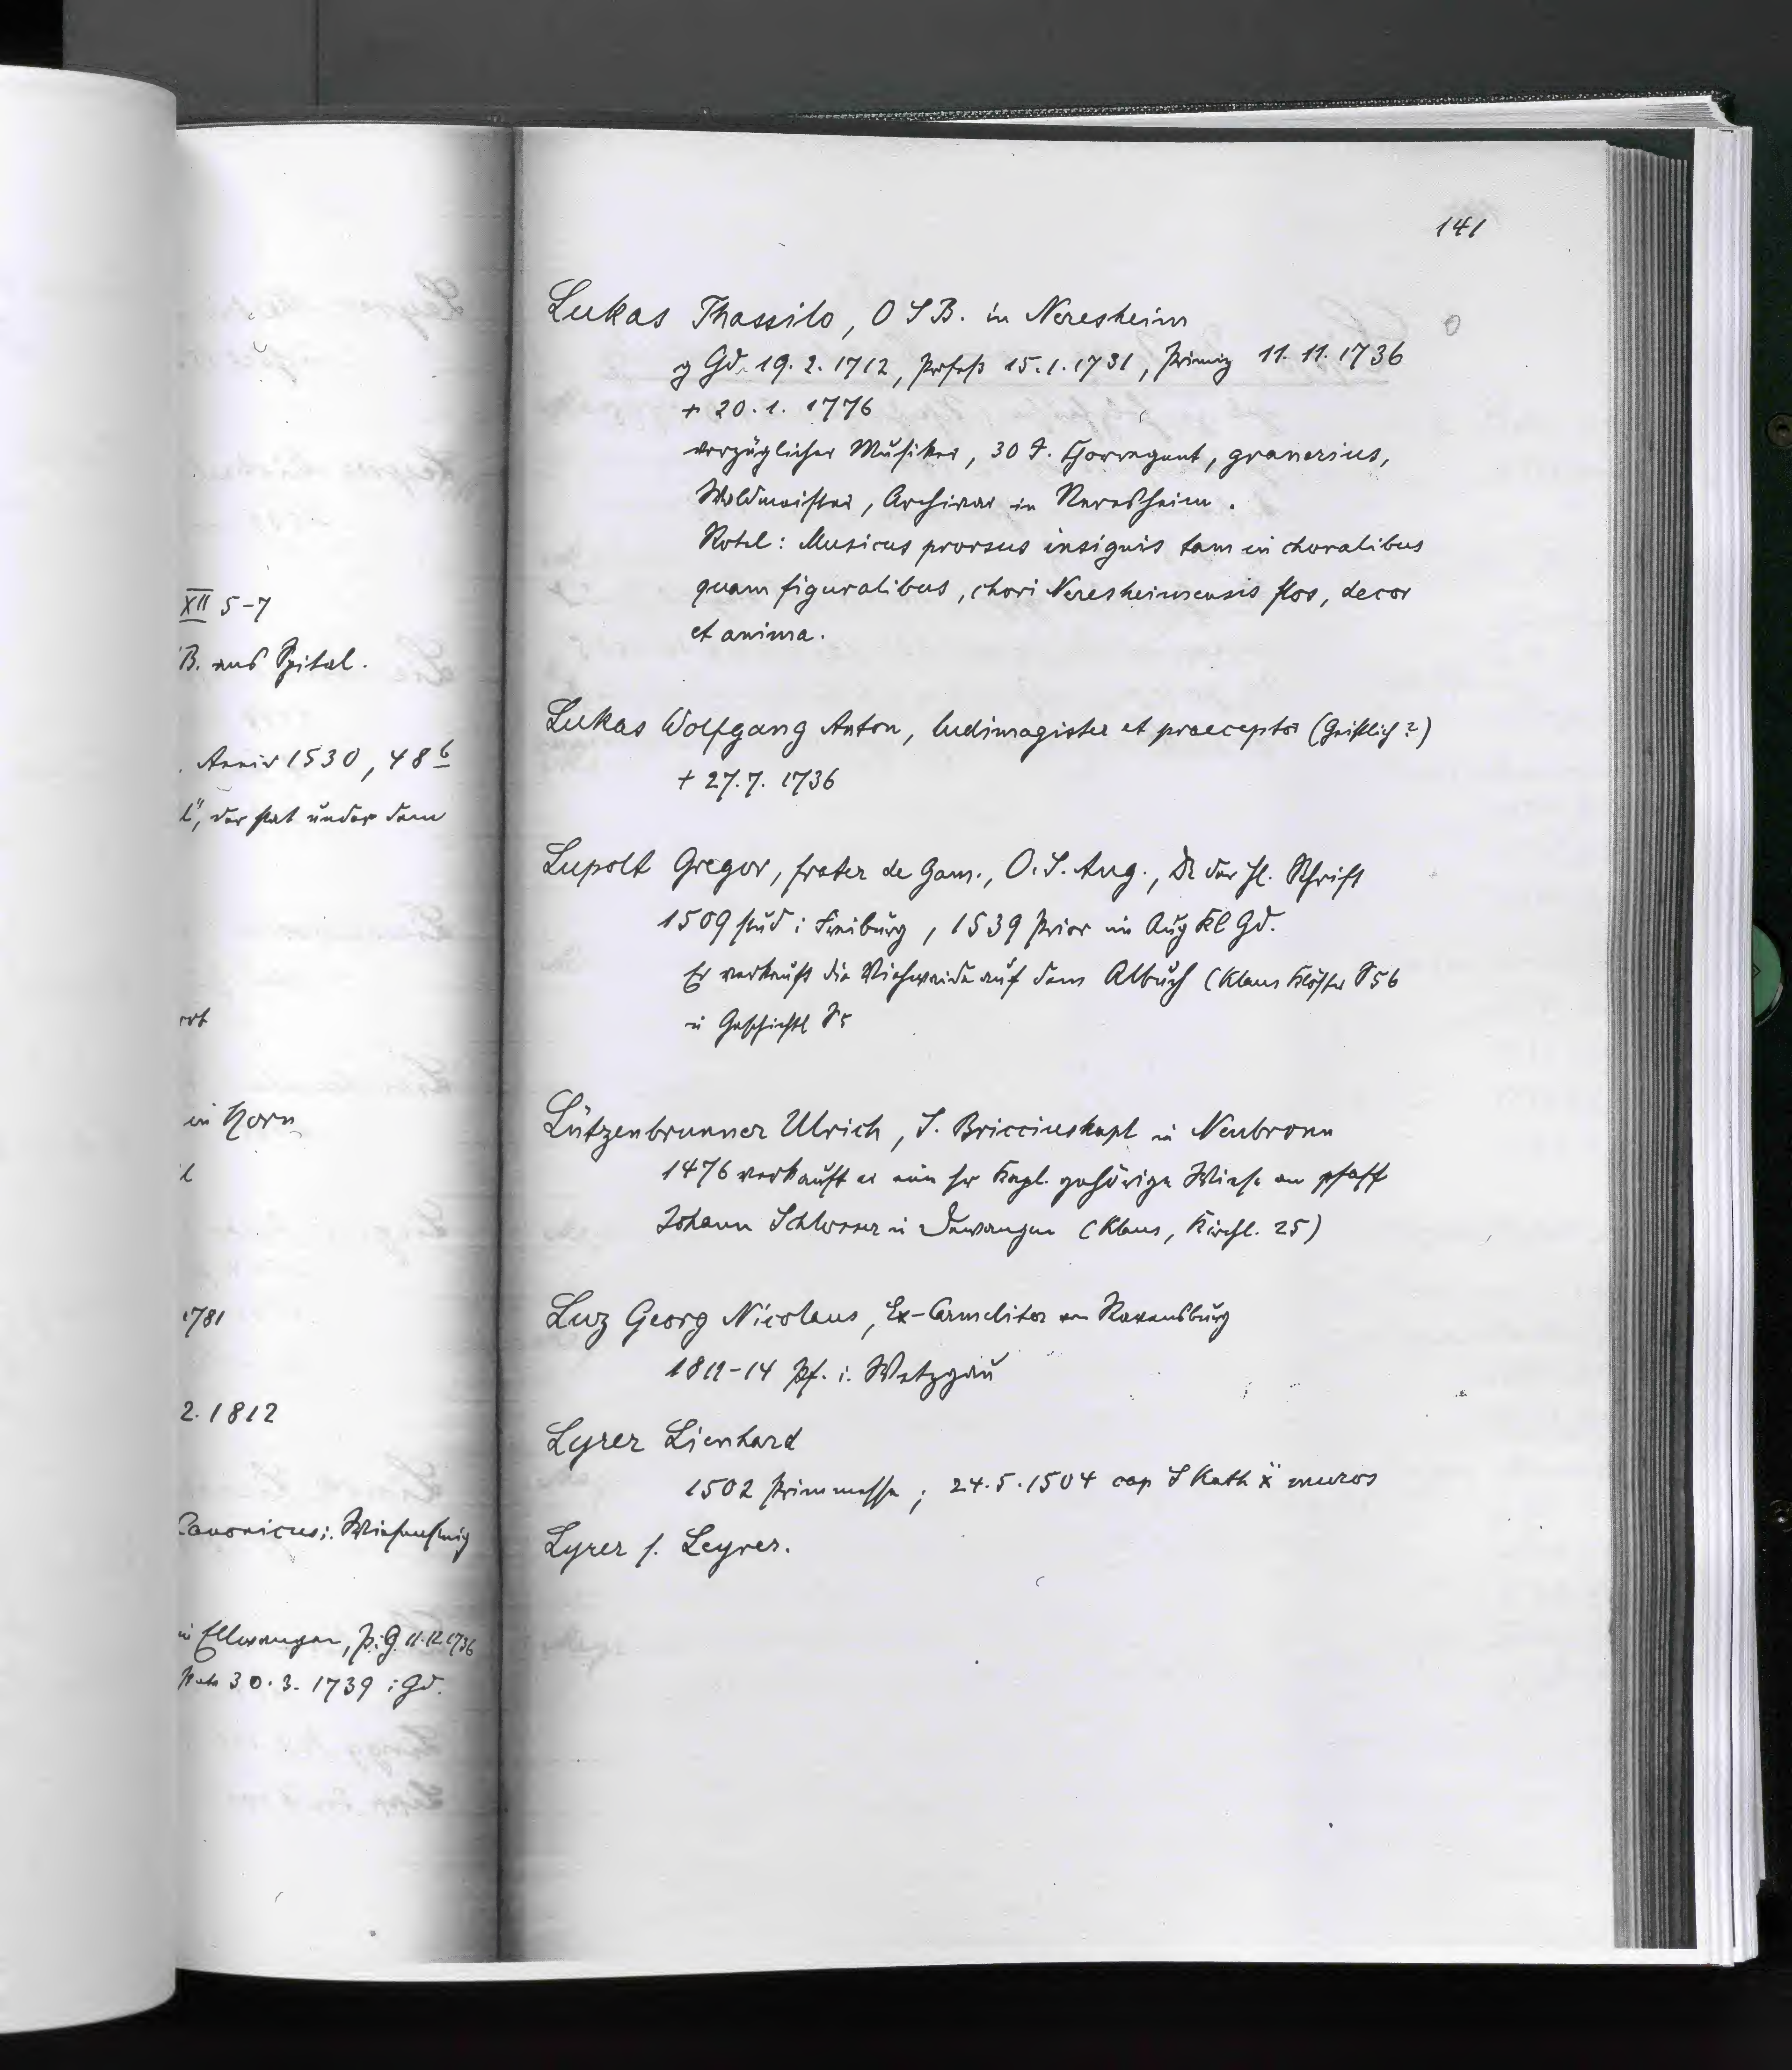 XII 5-7
B. aus Spital.
. Anniv 1530, 48 6
l", der stat under dem
in Horn
l
1781
2. 1812
Canonicus i. Wiesensteig
in Ellwangen, P. i. G. 11.12.1736
30.3. 1739 i Gd.
141
Lukas Thassilo, O S B. in Neresheim
g Gd. 19. 2. 1712, Profeß 15. 1. 1731, Primiz 11. 11. 1736
+ 20. 1. 1776
vorzüglicher Musiker, 30 J. Chorregent, granarius,
Waldmeister, Archivar in Neresheim.
Rotel: Musicus prorsus insignis tam in choralibus
quam figuralibus, chori Neresheimensis flos, decor
et anima.
Lukas Wolfgang Anton, ludimagister et praeceptor (Geistlich?)
+ 27. 7. 1736
Lupolt Gregor, frater de Gam., O. S. Aug., Dr der hl. Schrift
1509 stud i Freiburg, 1539 Prior im Aug Kl Gd.
Er verkauft die Viehweide auf dem Albuch (Klaus Klöster S 56
u Geschichtl S 5
Lützenbrunner Ulrich, S. Bricciuskapl in Neubronn
1476 verkauft er ein sr Kapl. gehörige Wiese an pfaff
Johann Schlosser in Dewangen (Klaus, Kirchl. 25)
Luz Georg Nicolaus, Ex-Carmeliter v Ravensburg
1811-14 Pf. i. Wetzgau
Lyrer Lienhard
1502 Primmesse; 24. 5. 1504 cap S Kath x muros
Lyrer s. Leyrer.